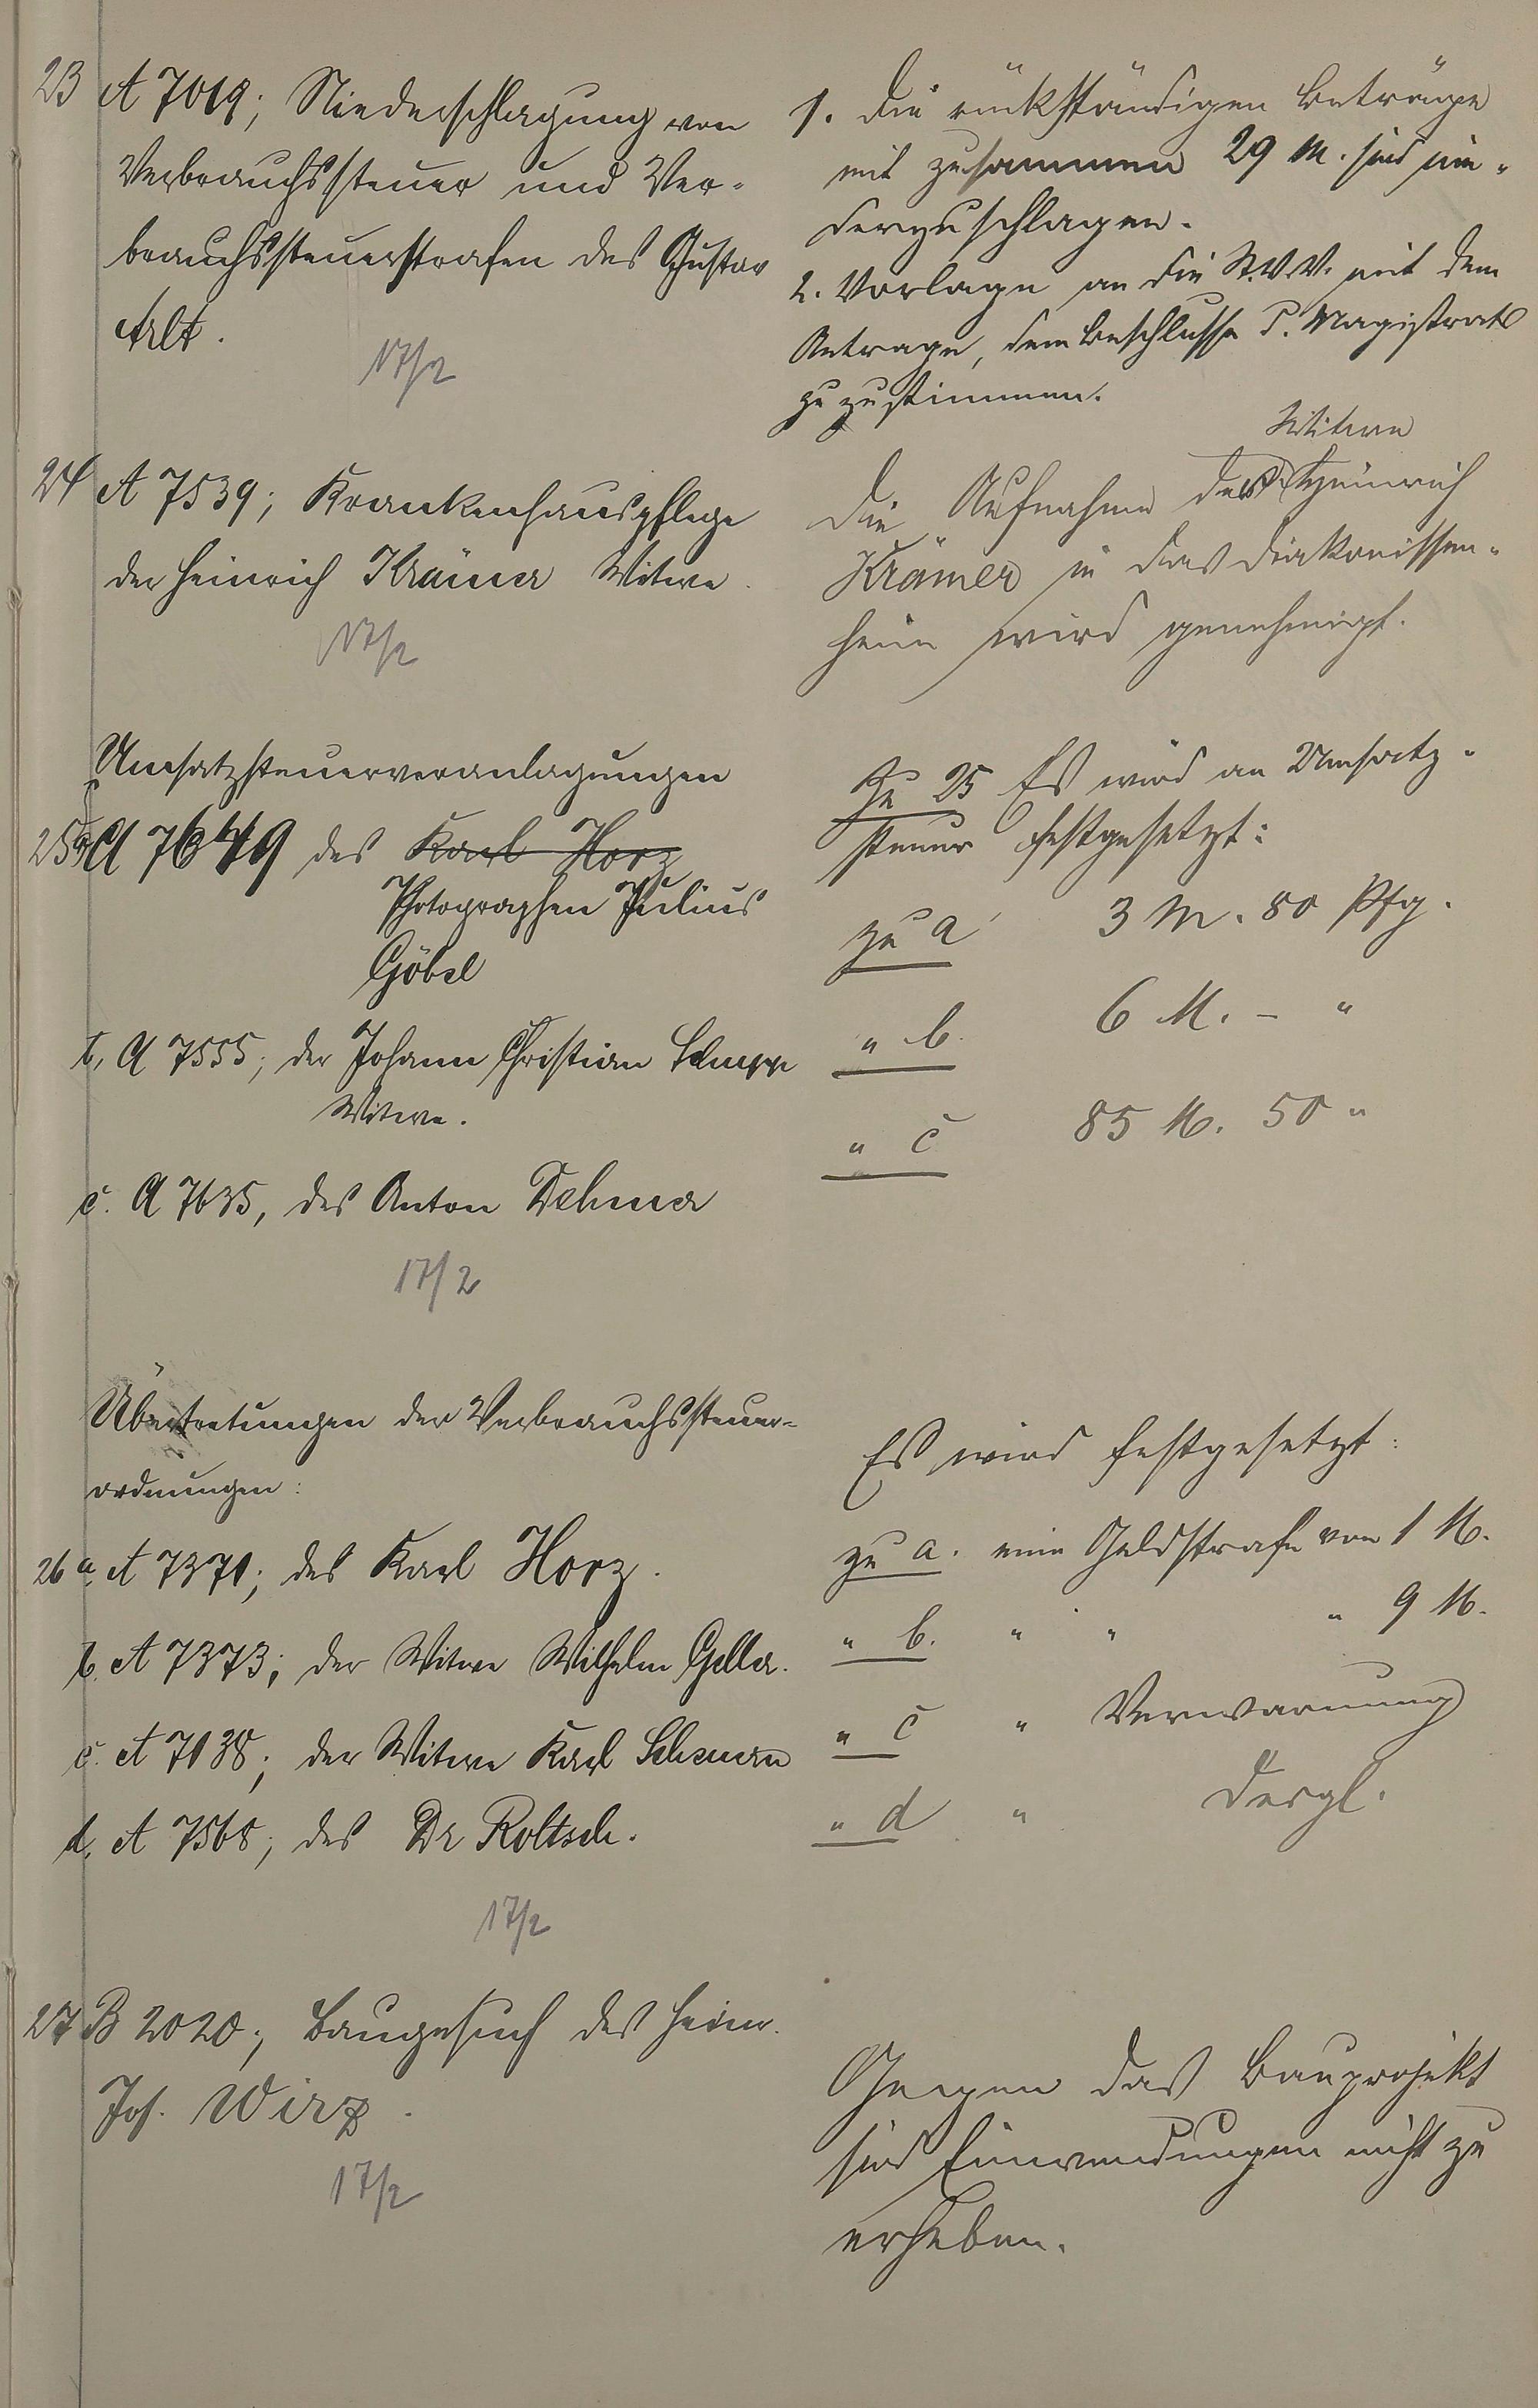 23 A 7019; Niederschlagung von
Verbrauchssteuer und Ver-
brauchssteuerstrafen des Gustav
Arlt.
17/2
1. Die rückständigen Beträge
mit zusammen 29 M. sind nie-
derzuschlagen.
2. Vorlage an die St.V.V. mit dem
Antrage, dem Beschlusse d. Magistrats
zuzustimmen.
24 A 7539; Krankenhauspflege
der Heinrich Krämer Witwe.
17/2
Witwe
Die Aufnahme des Heinrich
Krämer in das Diakonissen-
heim wird genehmigt.
Umsatzsteuerveranlagungen
25 a) A 7649 des Karl Horz
Photographen Julius
Göbel
b, A 7555; der Johann Christian Schupp
Witwe.
c. A 7635, des Anton Dehmer
17/2
Zu 25 Es wird an Umsatz-
steuer festgesetzt:
zu a 3 M. 80 Pfg.
" b. 6 M. - "
" c 85 M. 50 "
Übertretungen der Verbrauchssteuer-
ordnungen:
26 a. A 7371; des Karl Horz.
b. A 7373; der Witwe Wilhelm Geller.
c. A 7138; der Witwe Karl Scheuern
d. A 7568; des Dr Roltsch.
17/2
Es wird festgesetzt:
zu a. eine Geldstrafe von 1 M.
" b. " " " 9 M.
" c " Verwarnung
" d " dergl.
27 B 2020; Baugesuch des Heinr.
Jos. Wirz.
17/2
Gegen das Bauprojekt
sind Einwendungen nicht zu
erheben.